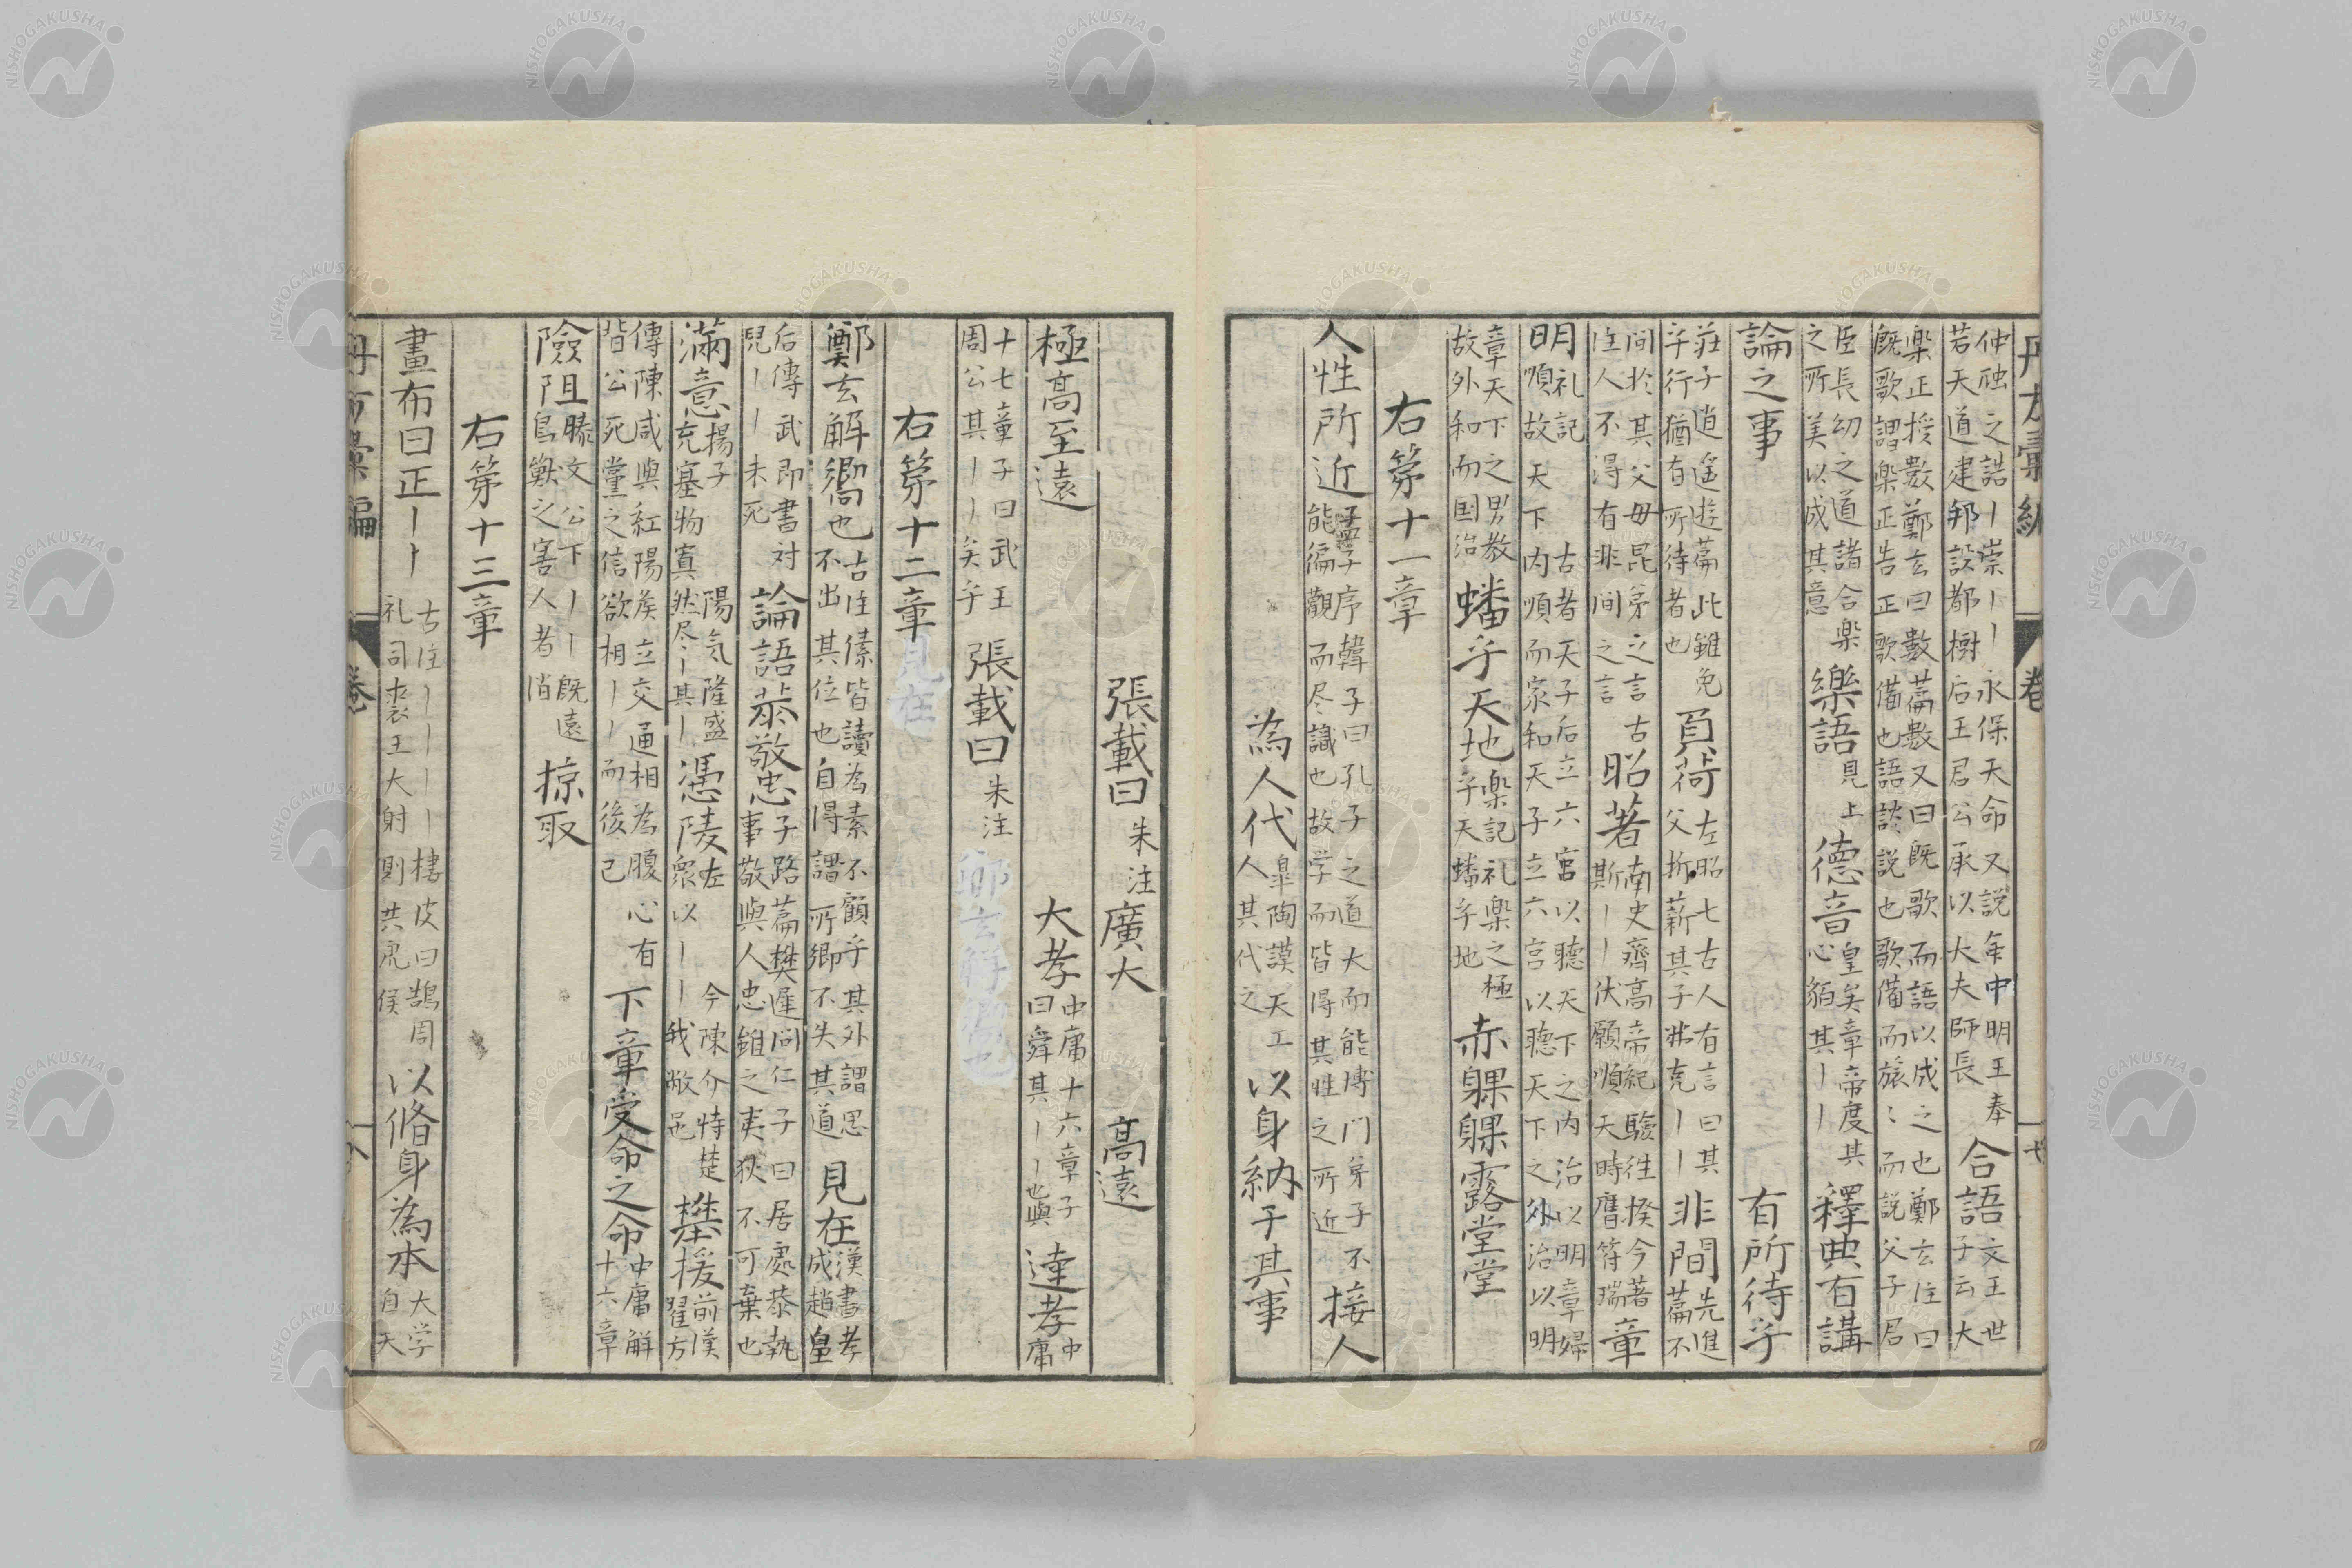 仲虺之誥丨崇丨丨永保天命又説命中明王奉
若天道建邦設都樹后王君公承以大夫師長
合語文王世
子云大
樂正授數鄭玄曰數篇數又曰既歌而語以成之也鄭玄注曰
既歌謂樂正告正歌備也語談説也歌備而旅〻而説父子君
臣長幼之道諸合樂
之所美以成其意
樂語見上
德音皇矣章帝度其
心貊其丨丨
釋典有講
論之事
有所待乎
莊子逍遥遊篇此雖免
乎行猶有所待者也
負荷左昭七古人有言曰其
父析薪其子弗克丨丨
非間先進
篇不
間於其父母昆弟之言古
注人不得有非間之言
昭著南史齊高帝紀驗往揆今著
斯丨丨伏願順天時膺符瑞
章
明礼記
順故天下内順而家和天子立六宮以聽天下之外治以明
古者天子后立六宮以聽天下之内治以明章婦
章天下之男教
故外和而国治
蟠乎天地樂記礼樂之極
乎天蟠乎地
赤躶躶露堂堂
右第十一章
人性所近孟子序韓子曰孔子之道大而能博門弟子不
能徧觀而尽識也故学而皆得其性之所近
接人
為人代皐陶謨天工
人其代之
以身納于其事
張載曰朱注
廣大
高遠
極高至遠
大孝中庸十六章子
曰舜其丨丨也與
達孝中
庸
十七章子曰武王
周公其丨丨矣乎
張載曰朱注
鄭玄解嚮也
右第十二章
見在
鄭玄解嚮也古注傃皆讀為素不顧乎其外謂思
不出其位也自得謂所鄉不失其道
見在漢書孝
成趙皇
后傳武即書対
兒丨丨未死
論語恭敬忠子路篇樊遲問仁子曰居處恭執
事敬與人忠雖之夷狄不可棄也
滿意揚子
充塞物寘然尽丨其丨
陽気隆盛
憑陵左
衆以丨丨我敝邑
今陳介恃楚
樊援前漢
翟方
傳陳咸與紅陽侯立交通相為腹心有
背公死黨之信欲相丨丨而後已
下章受命之命中庸解
十六章
險阻滕文公下丨丨既遠
鳥獣之害人者消
掠取
右第十三章
畫布曰正丨丨
古注丨丨丨丨丨棲皮曰鵠周
礼司裘王大射則共虎侯
以脩身為本大学
自天